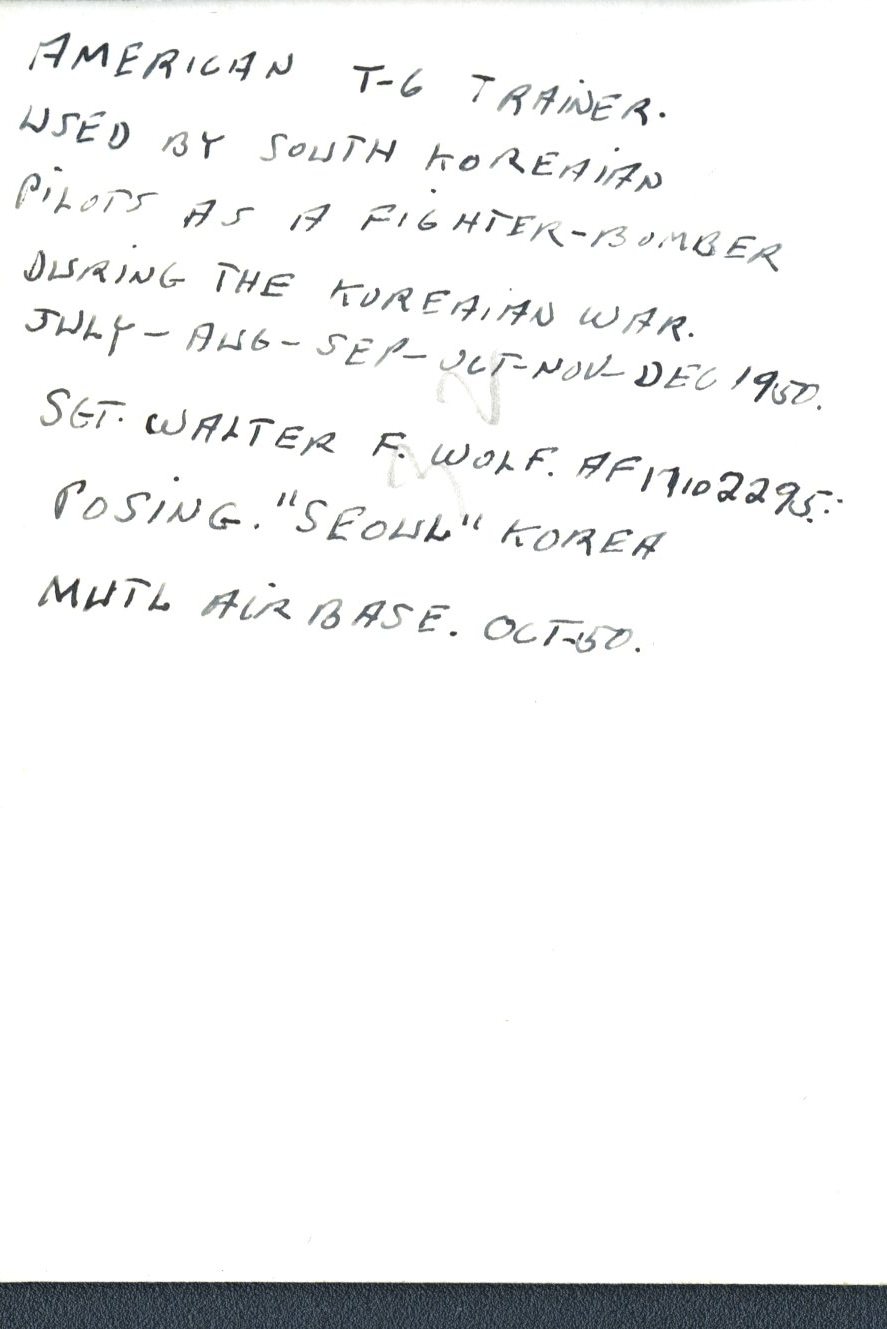 AMERICAN T-6 TRAINER.
USED BY SOUTH KOREAIAN
PILOTS AS A FIGHTER-BOMBER
DURING THE KOREAIAN WAR.
JULY-AUG-SEP-OCT-NOV-DEC 1950.
SGT. WALTER F. WOLF. AF17102295.
POSING. "SEOUL" KOREA
MUTL AIR BASE. OCT-50.